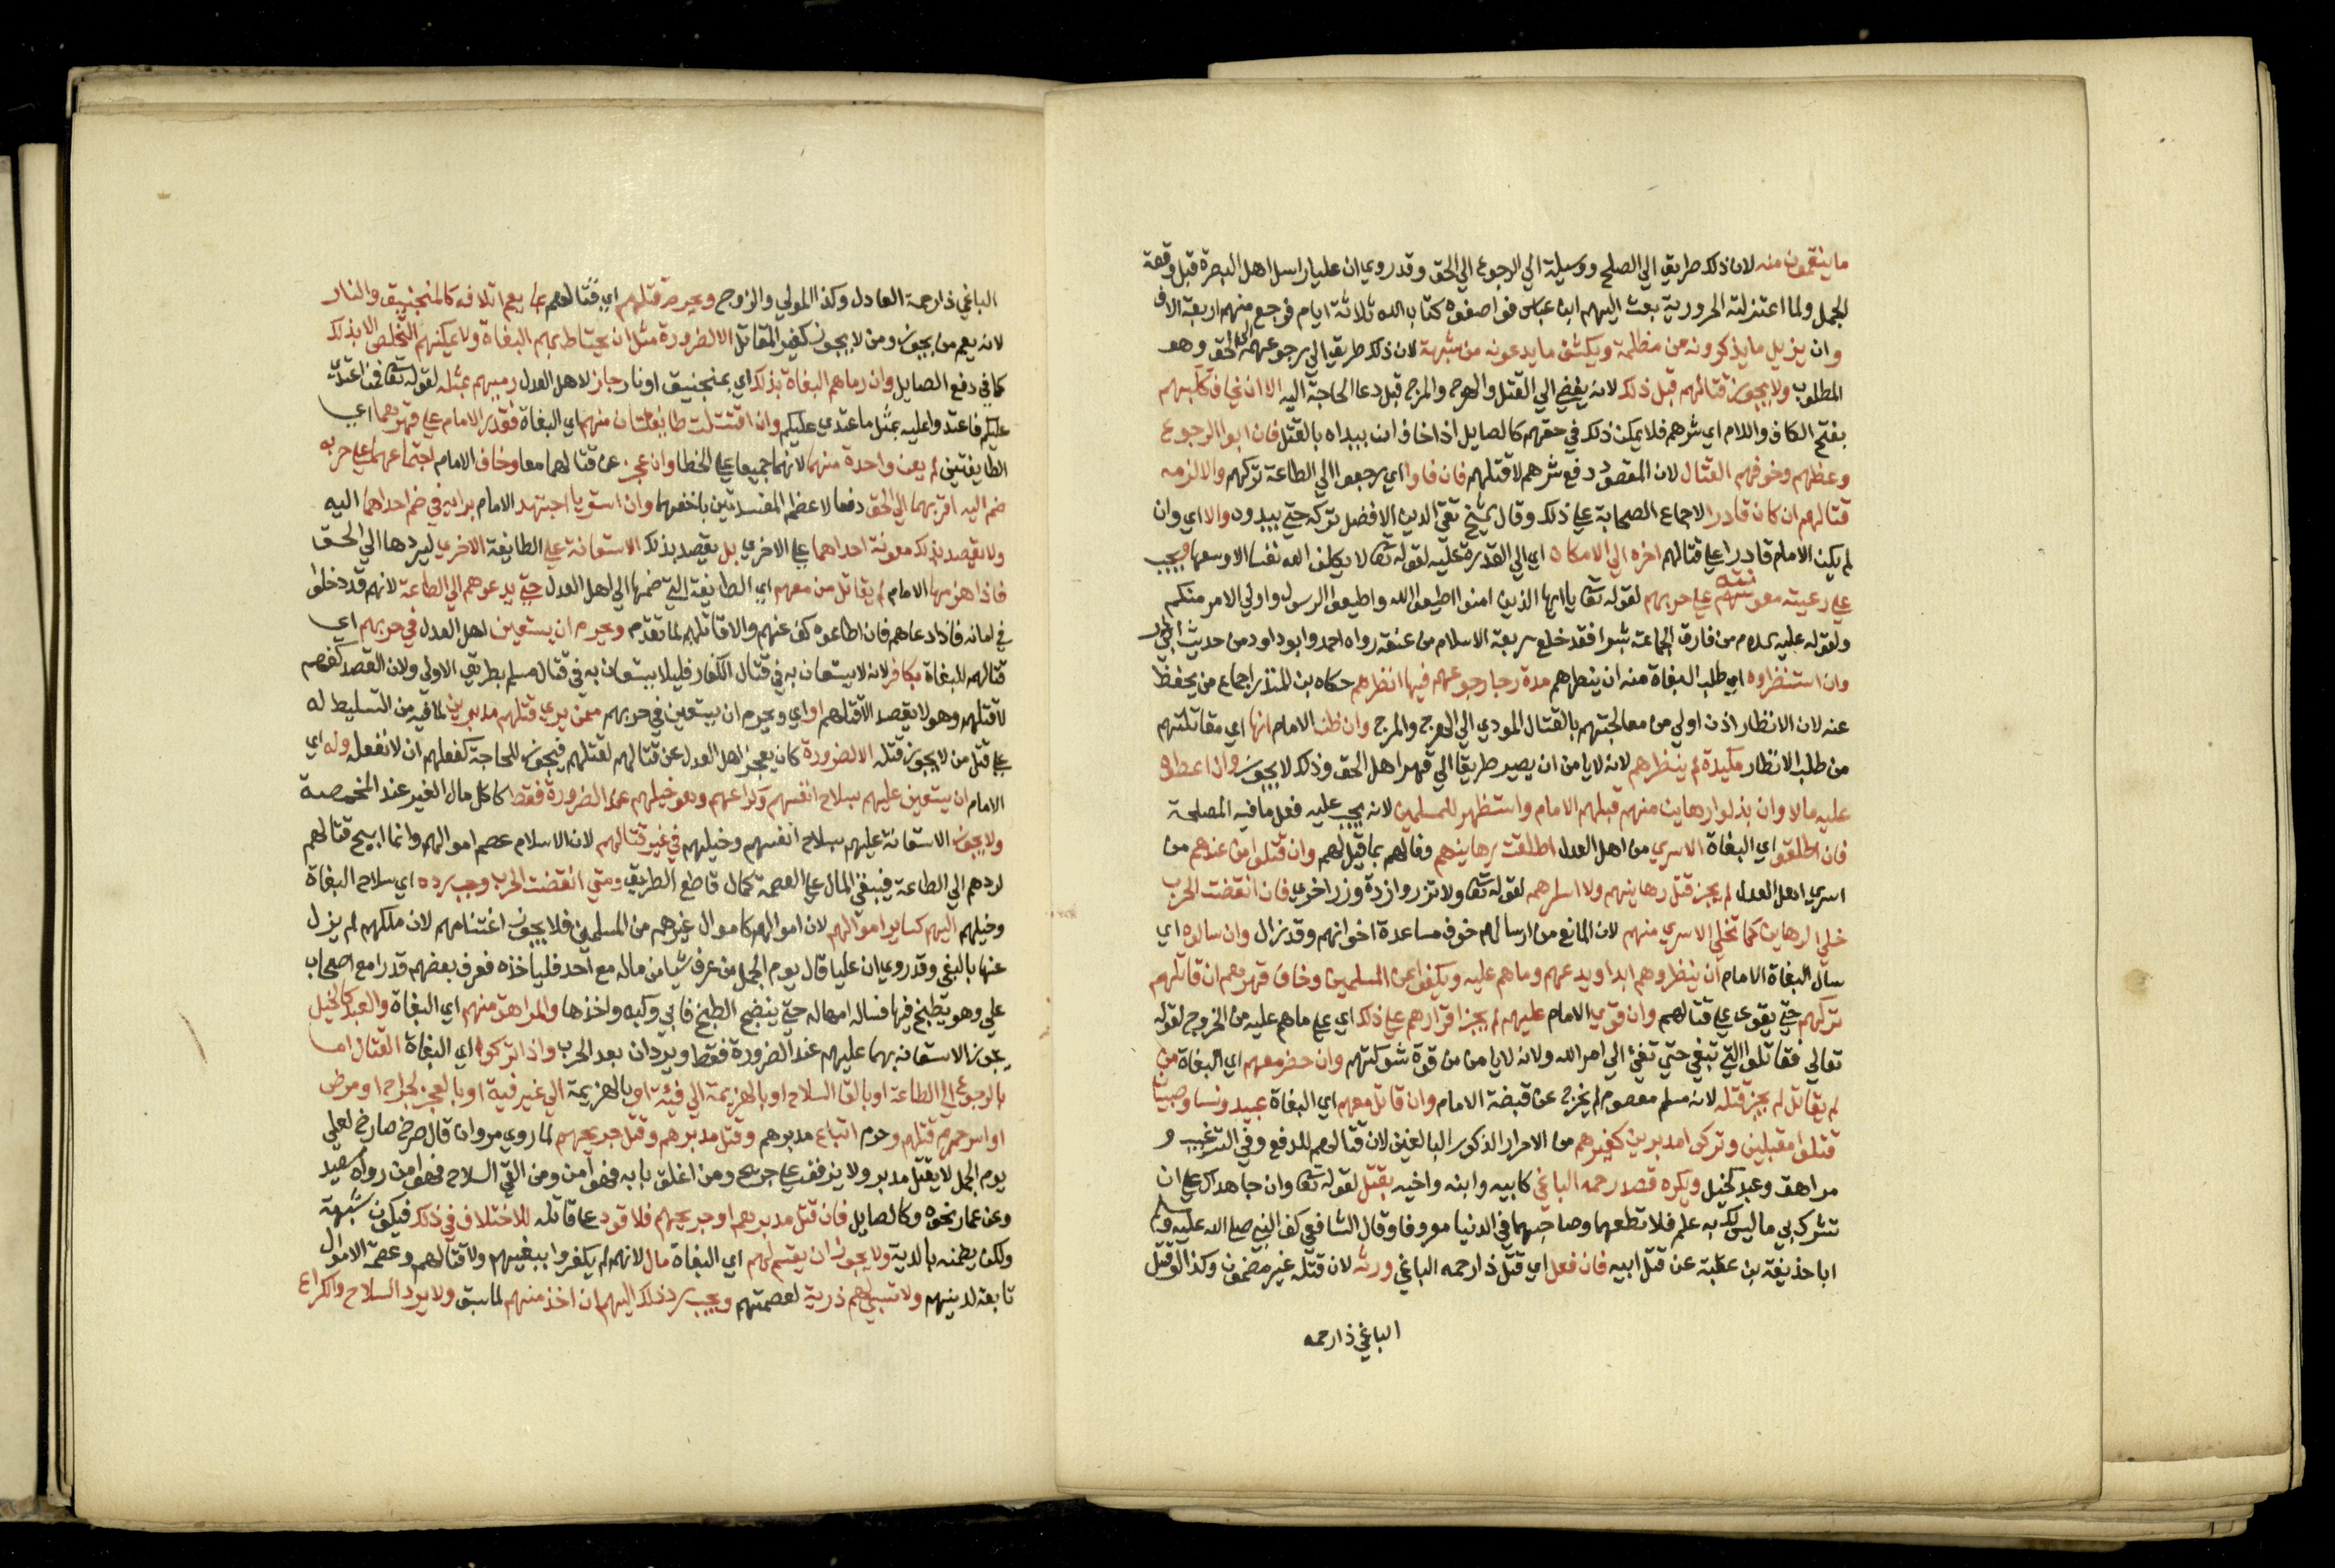 ما ينقمون منه لان ذلك طريق الي الصلح ووسيلة الي الرجوع الي الحق وقد روي ان عليا راسل اهل البصرة قبل وقعة
الجمل ولما اعتزلته الحرورية بعث اليهم ابن عباس فواضعوه كتاب الله ثلاثة ايام فرجع منهم اربعة الاف
وان يزيل ما يذكرونه من مظلمة ويكشف ما يدعونه من شبهة لان ذلك طريق الي رجوعهم الي الحق وهو
المطلوب ولا يجوز قتالهم قبل ذلك لانه يفضي الي القتل والهرج والمرج قبل دعا الحاجة اليه الا ان يخاف كلبهم
بفتح الكاف واللام اي شرهم فلا يمكن ذلك في حقهم كالصايل اذا خاف ان يبداه بالقتل فان ابوا الرجوع
وعظهم وخوفهم القتال لان المقصود دفع شرهم لا قتلهم فان فاوا اي رجعوا الي الطاعة تركهم والا لزمه
قتالهم ان كان قادرا لاجماع الصحابة علي ذلك وقال الشيخ تقي الدين الافضل تركه حتي يبدوه والا اي وان
لم يكن الامام قادرا علي قتالهم اخره الي الامكان اي الي القدرة عليه لقوله تعا لا يكلف الله نفسا الا وسعها ويجب
علي رعيته معونته علي حربهم لقوله تعا يا ايها الذين امنوا اطيعوا الله واطيعوا الرسول واولي الامر منكم
ولقوله عليه السلام من فارق الجماعة شبرا فقد خلع ربقة الاسلام من عنقه رواه احمد وابو داود من حديث ابي ذر
وان استنظروه اي طلب البغاة منه ان ينظرهم مدة رجا رجوعهم فيها انظرهم حكاه بن المنذر اجماع من يحفظ
عنه لان الانظار اذن اولي من معالجتهم بالقتال المودي الي الهرج والمرج وان ظن الامام انها اي مقاتلتهم
من طلب الانظار مكيدة لم ينظرهم لانه لا يامن ان يصير طريقا الي قهر اهل الحق وذلك لا يجوز وان اعطوا
عليه مالا وان بذلوا رهاين منهم قبلهم الامام واستظهر للمسلمين لانه يجب عليه فعل ما فيه المصلحة
فان اطلقوا اي البغاة الاسري من اهل العدل اطلقت رهاينهم وفا لهم بما قيل لهم وان قتلوا من عندهم من
اسري اهل العدل لم يجز قتل رهاينهم ولا اسراهم لقوله تعا ولا تزر وازرة وزر اخري فان انقضت الحرب
خلي الرهاين كما تخلي الاسري منهم لان المانع من ارسالهم خوف مساعدة اخوانهم وقد زال وان سالوه اي
سال البغاة الامام ان ينظروهم ابدا ويدعهم وما هم عليه ويكفوا عن المسلمين وخاف قهرهم ان قاتلهم
تركهم حتي يقوي علي قتالهم وان قوي الامام عليهم لم يجز اقرارهم علي ذلك اي علي ما هم عليه من الخروج لقوله
تعالي فقاتلوا التي تبغي حتي تفي الي امر الله ولانه لا يامن من قوة شوكتهم وان حضر معهم اي البغاة من
لم يقاتل لم يجز قتله لانه مسلم معصوم لم يخرج عن قبضة الامام وان قاتل معهم اي البغاة عبيد ونسا وصبيان
قتلوا مقبلين وتركوا مدبرين كغيرهم من الاحرار الذكور البالغين لان قتالهم للدفع وفي الترغيب و
مراهق وعبد كخيل ويكره قصد رحمه الباغي كابيه وابنه واخيه بقتل لقوله تعا وان جاهداك علي ان
تشرك بي ما ليس لك به علم فلا تطعهما وصاحبهما في الدنيا معروفا وقال الشافعي كف النبي صلي الله عليه وسلم
ابا حذيفة بن عتبة عن قتل ابيه فان فعل اي قتل ذا رحمه الباغي ورثه لان قتله غير مضمون وكذا لو قتل
الباغي ذا رحمه
الباغي ذا رحمه العادل وكذا المولي والزوج ويحرم قتلهم اي قتالهم بما يعم اتلافه كالمنجنيق والنار
لانه يعم من يجوز ومن لا يجوز كغير المقاتل الا لضرورة مثل ان يحتاط بهم البغاة ولا يمكنهم التخلص الا بذلك
كما في دفع الصايل وان رماهم البغاة بذلك اي بمنجنيق او نار جاز لاهل العدل رميهم بمثله لقوله تعا فمن اعتدي
عليكم فاعتدوا عليه بمثل ما اعتدي عليكم وان اقتتلت طايفتان منهم اي البغاة فقدر الامام علي قهرهما اي
الطايفتين لم يعن واحدة منهما لانهما جميعا علي الخطا وان عجز عن قتالهما معا وخاف الامام اجتماعهما علي حربه
ضم اليه اقربهما الي الحق دفعا لاعظم المفسدتين باخفهما وان استويا اجتهد الامام برايه في ضم احداهما اليه
ولا يقصد بذلك معونة احداهما علي الاخري بل يقصد بذلك الاستعانة علي الطايفة الاخري ليردها الي الحق
فاذا هزمها الامام لم يقاتل من معهم اي الطايفة التي ضمها الي اهل العدل حتي يدعوهم الي الطاعة لانهم قد دخلوا
في امانه فاذا دعاهم فان اطاعوه كف عنهم والا قاتلهم لما تقدم ويحرم ان يستعين اهل العدل في حربهم اي
قتالهم للبغاة بكافر لانه لا يستعان به في قتال الكفار فليلا يستعان به في قتال مسلم بطريق الاولي ولان القصد كفهم
لا قتلهم وهو لا يقصد الا قتلهم او اي ويحرم ان يستعين في حربهم ممن يري قتلهم مدبرين لما فيه من التسليط له
علي قتل من لا يجوز قتله الا لضرورة كان يعجز اهل العدل عن قتالهم لقتلهم فيجوز للحاجة كفعلهم ان لا نفعله وله اي
الامام ان يستعين عليهم بسلاح انفسهم وكراعهم وهو خيلهم عند الضرورة فقط كاكل مال الغير عند المخمصة
ولا يجوز الاستعانة عليهم بسلاح انفسهم وخيلهم في غير قتالهم لان الاسلام عصم اموالهم وانما ابيح قتالهم
لردهم الي الطاعة فيبقي المال علي العصمة كمال قاطع الطريق ومتي انقضت الحرب وجب رده اي سلاح البغاة
وخيلهم اليهم كساير اموالهم لان اموالهم كاموال غيرهم من المسلمين فلا يجوز اغتنامهم لان ملكهم لم يزل
عنها بالبغي وقد روي ان عليا قال يوم الجمل من عرف شيا من ماله مع احد فلياخذه فعرف بعضهم قدرا مع اصحاب
علي وهو يطبخ فيها فساله امهاله حتي ينضج الطبخ فابي وكبه واخذها والمراهق منهم اي البغاة والعبد كالخيل
يجوز الاستعانة بهما عليهم عند الضرورة فقط ويردان بعد الحرب واذا تركوا اي البغاة القتال اما
بالرجوع الي الطاعة او بالقا السلاح او بالهزيمة الي فية او بالهزيمة الي غير فية او بالعجز لجراح او مرض
او اسر حرم قتلهم وحرم اتباع مدبرهم وقتل مدبرهم وقتل جريحهم لما روي مروان قال صرخ صارخ لعلي
يوم الجمل لا يقتل مدبر ولا يذفف علي جريح ومن اغلق بابه فهو امن ومن القي السلاح فهو امن رواه سعيد
وعن عمار نحوه وكالصايل فان قتل مدبرهم او جريحهم فلا قود علي قاتله للاختلاف في ذلك فيكون شبهة
ولكن يضمنه بالدية ولا يجوز ان يغنم لهم اي البغاة مال لانهم لم يكفروا ببغيهم ولا قتالهم وعصمة الاموال
تابعة لدينهم ولا تسبي لهم ذرية لعصمتهم ويجب رد ذلك اليهم ان اخذ منهم لما سبق ولا يرد السلاح والكراع